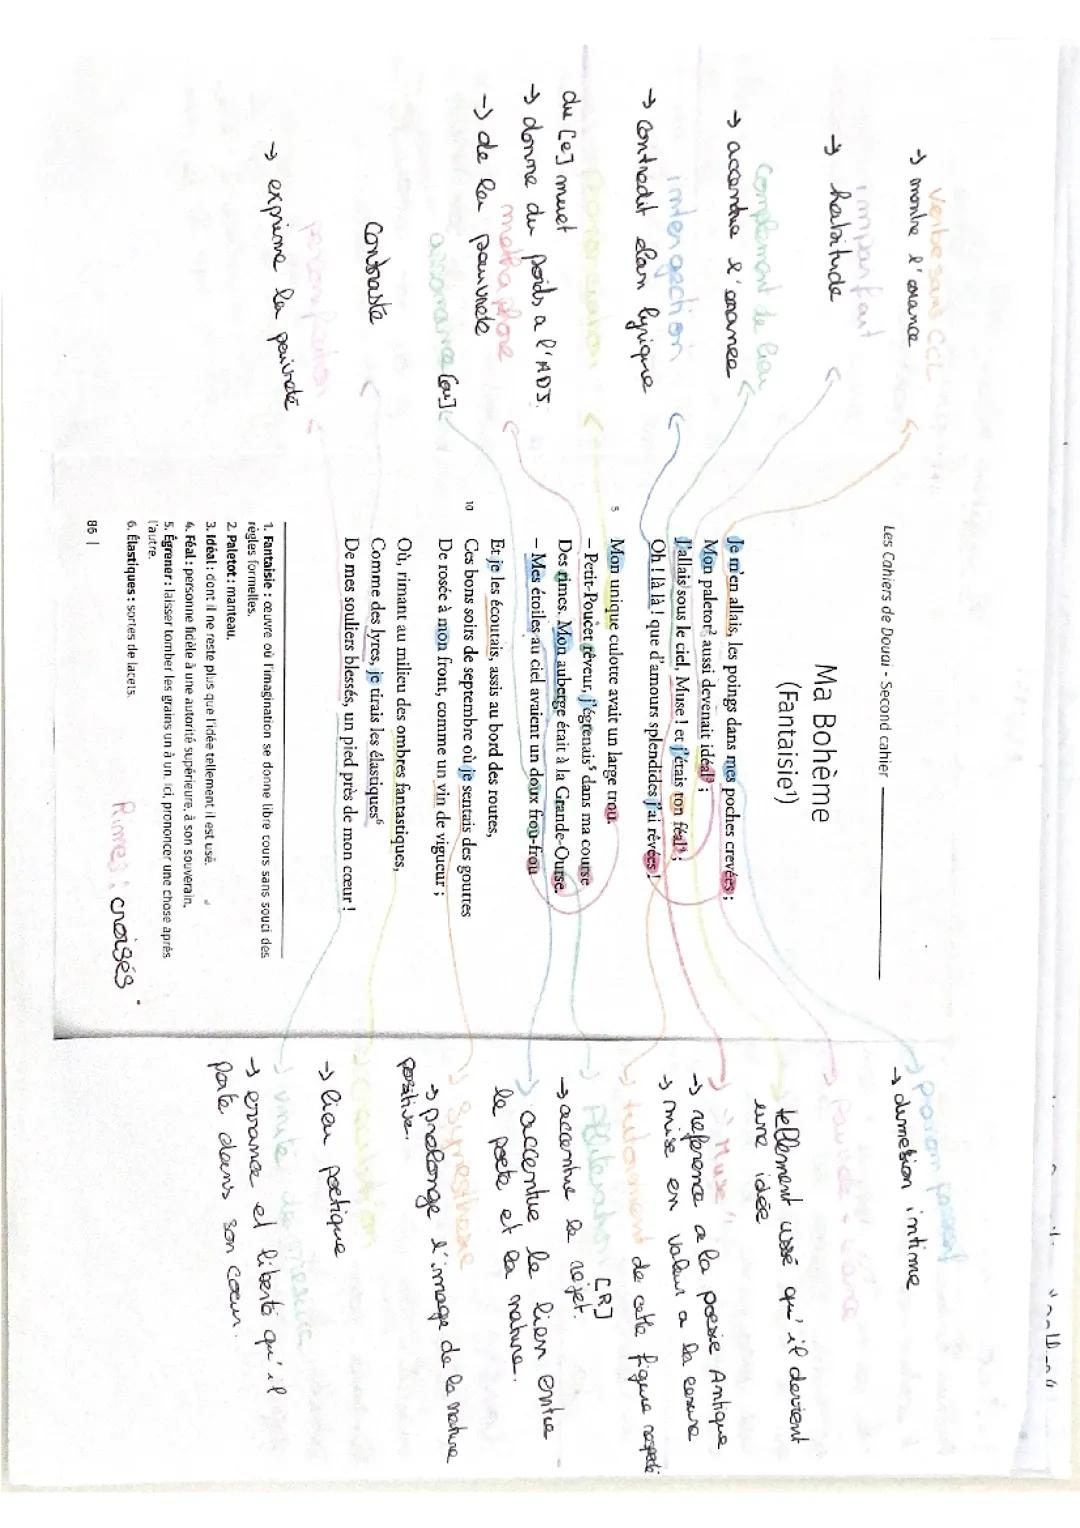 Les Cahiers de Douai - Second cahier
Ma Bohème
(Fantaisie¹)
Je m'en allais, les poings dans mes poches crevées ;
Mon paletot² aussi devenait idéal³ ;
J'allais sous le ciel, Muse ! et j'étais ton féal⁴ ;
Oh ! là là ! que d'amours splendides j'ai rêvées !
5 Mon unique culotte avait un large trou.
– Petit-Poucet rêveur, j'égrenais⁵ dans ma course
Des rimes. Mon auberge était à la Grande-Ourse.
– Mes étoiles au ciel avaient un doux frou-frou
Et je les écoutais, assis au bord des routes,
10 Ces bons soirs de septembre où je sentais des gouttes
De rosée à mon front, comme un vin de vigueur ;
Où, rimant au milieu des ombres fantastiques,
Comme des lyres, je tirais les élastiques⁶
De mes souliers blessés, un pied près de mon cœur !
1. Fantaisie : œuvre où l'imagination se donne libre cours sans souci des
règles formelles.
2. Paletot : manteau.
3. Idéal : dont il ne reste plus que l'idée tellement il est usé.
4. Féal : personne fidèle à une autorité supérieure, à son souverain.
5. Égrener : laisser tomber les grains un à un. Ici, prononcer une chose après
l'autre.
6. Élastiques : sortes de lacets.
86 |
Rimes : croisés
Verbe sans CCL
→ montre l'errance
imparfait
→ habitude
Complement de lieu
→ accentue l'errance
interjection
→ contredit élan lyrique
du [e] muet
→ donne du poids a l'ADJ.
metaphore
→ de la pauvreté
assonance [ou]
Contraste
personification
→ exprime la pauvreté
→ dimesion intime
tellement usé qu'il devient
une idée
"Muse"
→ reference a la poesie Antique
→ mise en valeur a la cesure
de cette figure
Alliteration [R]
→ accentue le rejet.
accentue le lien entre
le poete et la nature.
Synesthesie
→ prolonge l'image de la nature
positive.
→ lieu poetique
→ errance et liberté qu'il
porte dans son coeur.